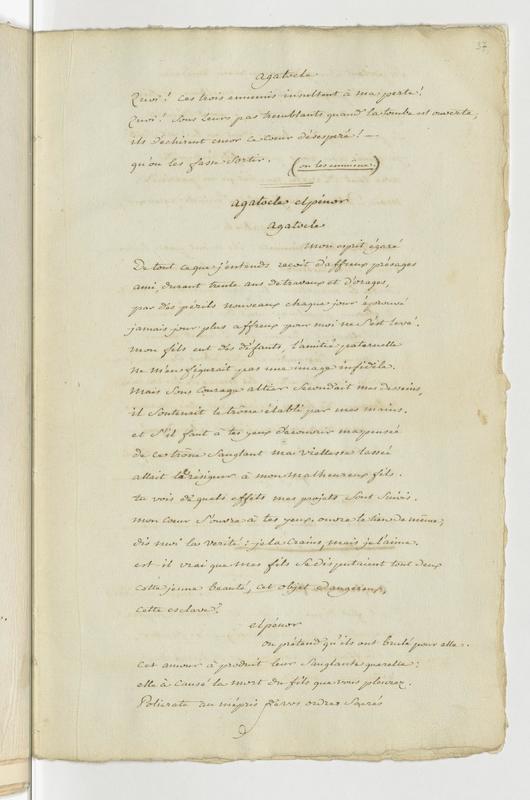 37
agatocle
Quoi! ces trois ennemis insultent à ma perte!
Quoi! sous leurs pas tremblants quand la tombe est ouverte,
ils dechirent encor ce coeur désesperé! —
qu'on les fasse sortir. (on les emmène.)
agatocle elpénor
agatocle
mon esprit égaré
De tout ce que j'entends reçoit d'affreux présages
ami, durant trente ans de travaux et d'orages,
par des périls nouveaux chaque jour éprouvé
jamais jour plus affreux pour moi ne s'est levé.
mon fils eut des défauts, l'amitié paternelle
ne m'en figurait pas une image infidèle.
mais son courage altier secondait mes desseins,
il soutenait le trône établi par mes mains.
et s'il faut à tes yeux découvrir ma pensée
de ce trône sanglant ma viellesse lassée
allait le résigner à mon malheureux fils.
tu vois de quels effets mes projets sont suivis.
mon coeur s'ouvre à tes yeux, ouvre le tien de même;
dis moi la verité: je la crains, mais je l'aime.
est il vrai que mes fils se disputaient tout deux
cette jeune beauté, cet objet dangereux,
cette esclave?
elpénor
on prétend qu'ils ont brulé pour elle.
cet amour à produit leur sanglante querelle:
elle à causé la mort du fils que vous pleurez.
Policrate au mépris de vos ordres sacrés